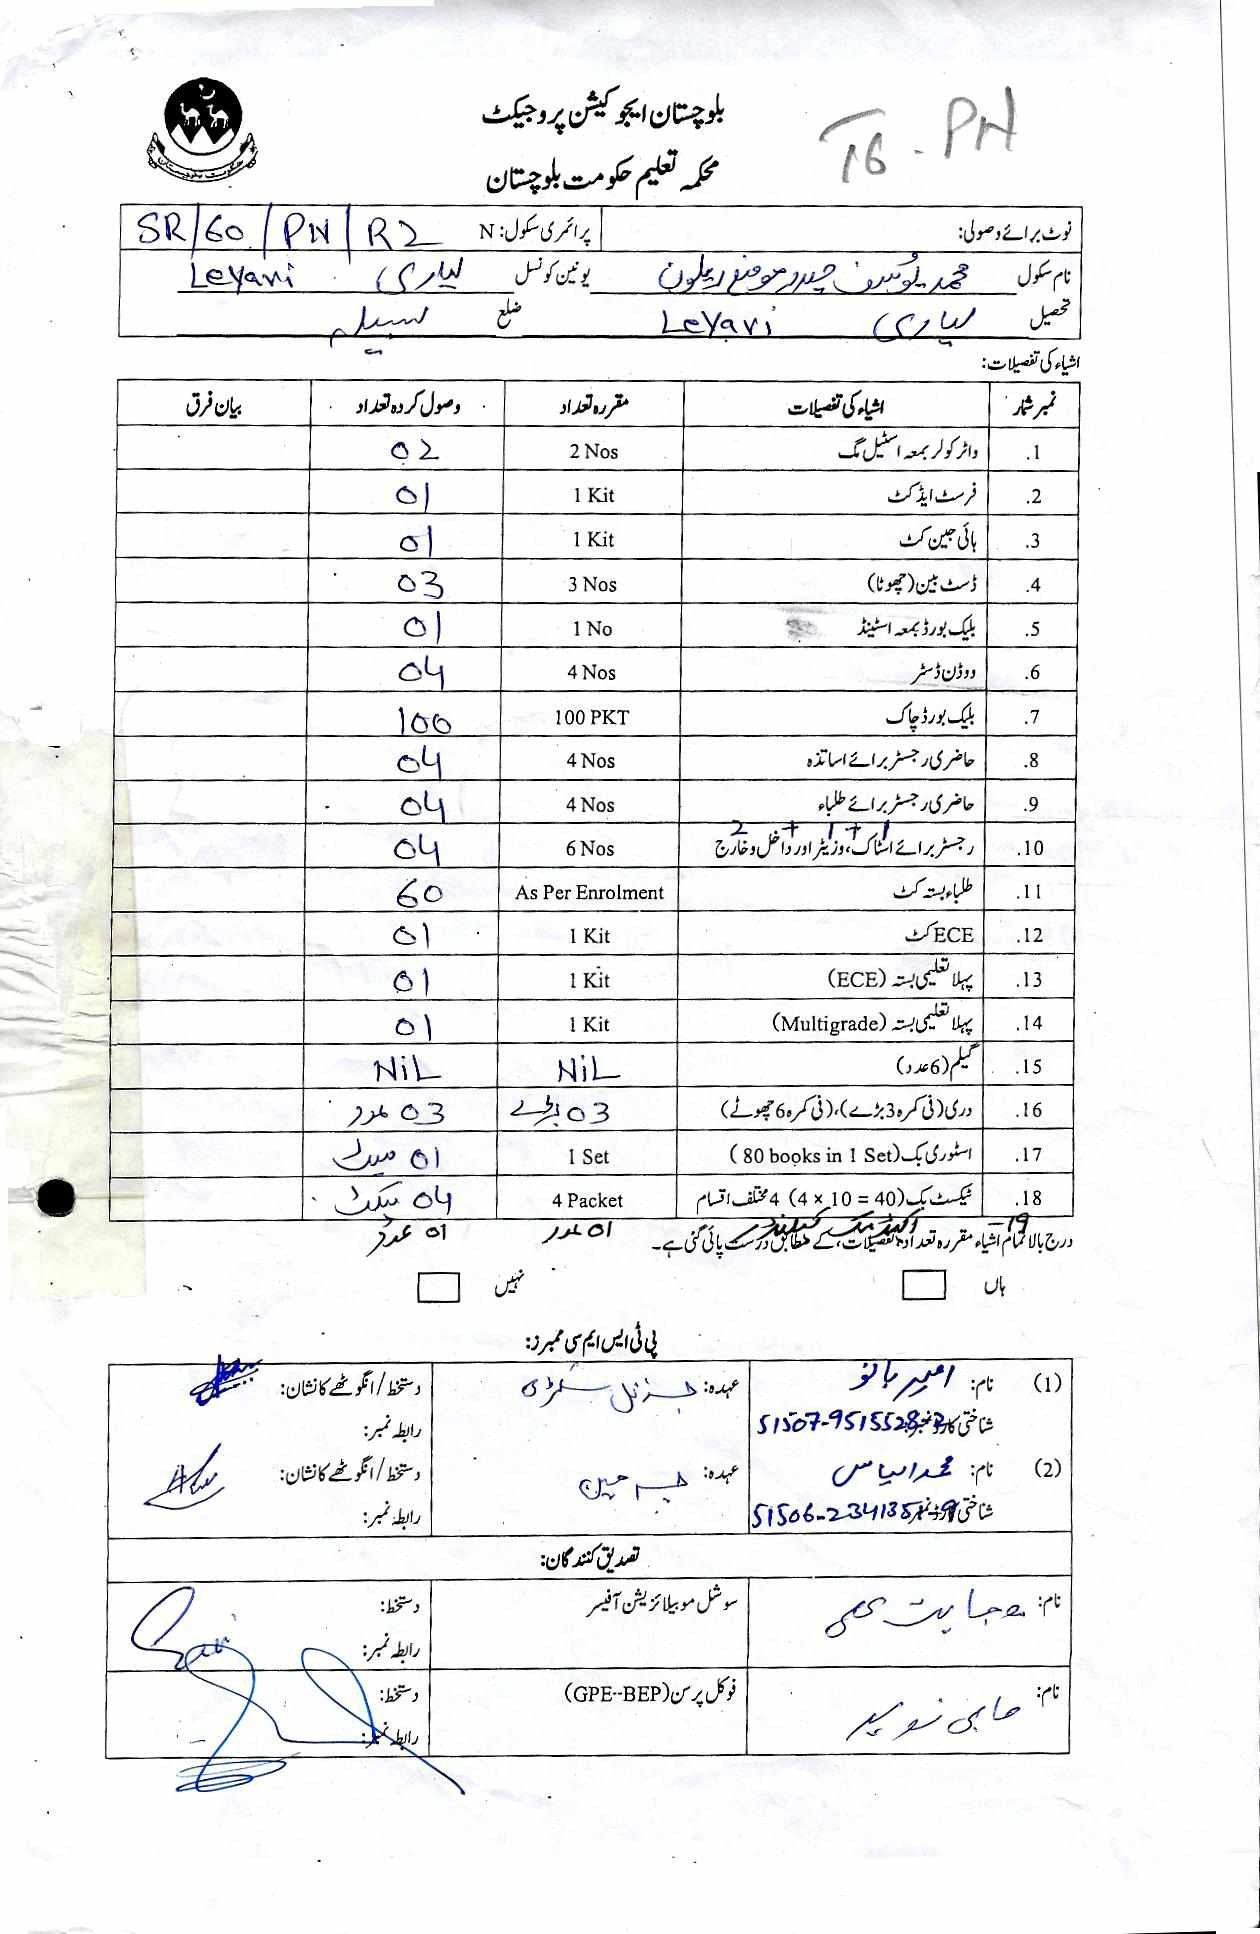 بلوچستان ایجوکیشن پروجیکٹ
T6-PH
محکمہ تعلیم حکومت بلوچستان
نوٹ برائے وصولی: پرائمری سکول: N SR/60/PN/R2
نام سکول محمد یوسف حیدر موضع یونین کونسل لیاری Leyari
تحصیل لیاری Leyari ضلع لسبیلہ
اشیاء کی تفصیلات:
نمبر شمار اشیاء کی تفصیلات مقررہ تعداد وصول کردہ تعداد بیان فرق
1. واٹر کولر بمعہ اسٹیل مگ 2 Nos 02
2. فرسٹ ایڈ کٹ 1 Kit 01
3. ہائی جین کٹ 1 Kit 01
4. ڈسٹ بین (چھوٹا) 3 Nos 03
5. بلیک بورڈ بمعہ اسٹینڈ 1 No 01
6. ووڈن ڈسٹر 4 Nos 04
7. بلیک بورڈ چاک 100 PKT 100
8. حاضری رجسٹر برائے اساتذہ 4 Nos 04
9. حاضری رجسٹر برائے طلباء 4 Nos 04
1 + 1 + 2
10. رجسٹر برائے اسٹاک، وزیٹر اور داخل و خارج 6 Nos 04
11. طلباء بستہ کٹ As Per Enrolment 60
12. ECE کٹ 1 Kit 01
13. پہلا تعلیمی بستہ (ECE) 1 Kit 01
14. پہلا تعلیمی بستہ (Multigrade) 1 Kit 01
15. گیلم (6 عدد) NiL NiL
16. دری (فی کمرہ 3 بڑے)، (فی کمرہ 6 چھوٹے) 03 بڑے 03 عدد
17. اسٹوری بک (80 books in 1 Set) 1 Set 01 سیٹ
18. ٹیکسٹ بک (4 x 10 = 40) 4 مختلف اقسام 4 Packet 04 پیکٹ
19- اکیڈمک کیلنڈر 01 عدد 01 عدد
درج بالا تمام اشیاء مقررہ تعداد، تفصیلات، کے مطابق درست پائی گئی ہے۔
ہاں نہیں
پی ٹی ایس ایم سی ممبرز:
(1) نام: امیر بانو عہدہ: جنرل سیکرٹری دستخط/انگوٹھے کا نشان:
شناختی کارڈ نمبر: 51507-9515528-2 رابطہ نمبر:
(2) نام: محمد الیاس عہدہ: چیئرمین دستخط/انگوٹھے کا نشان:
شناختی کارڈ نمبر: رابطہ نمبر:
تصدیق کنندگان:
نام: سوشل موبیلائزیشن آفیسر دستخط:
رابطہ نمبر:
نام: فوکل پرسن (GPE--BEP) دستخط:
رابطہ نمبر: